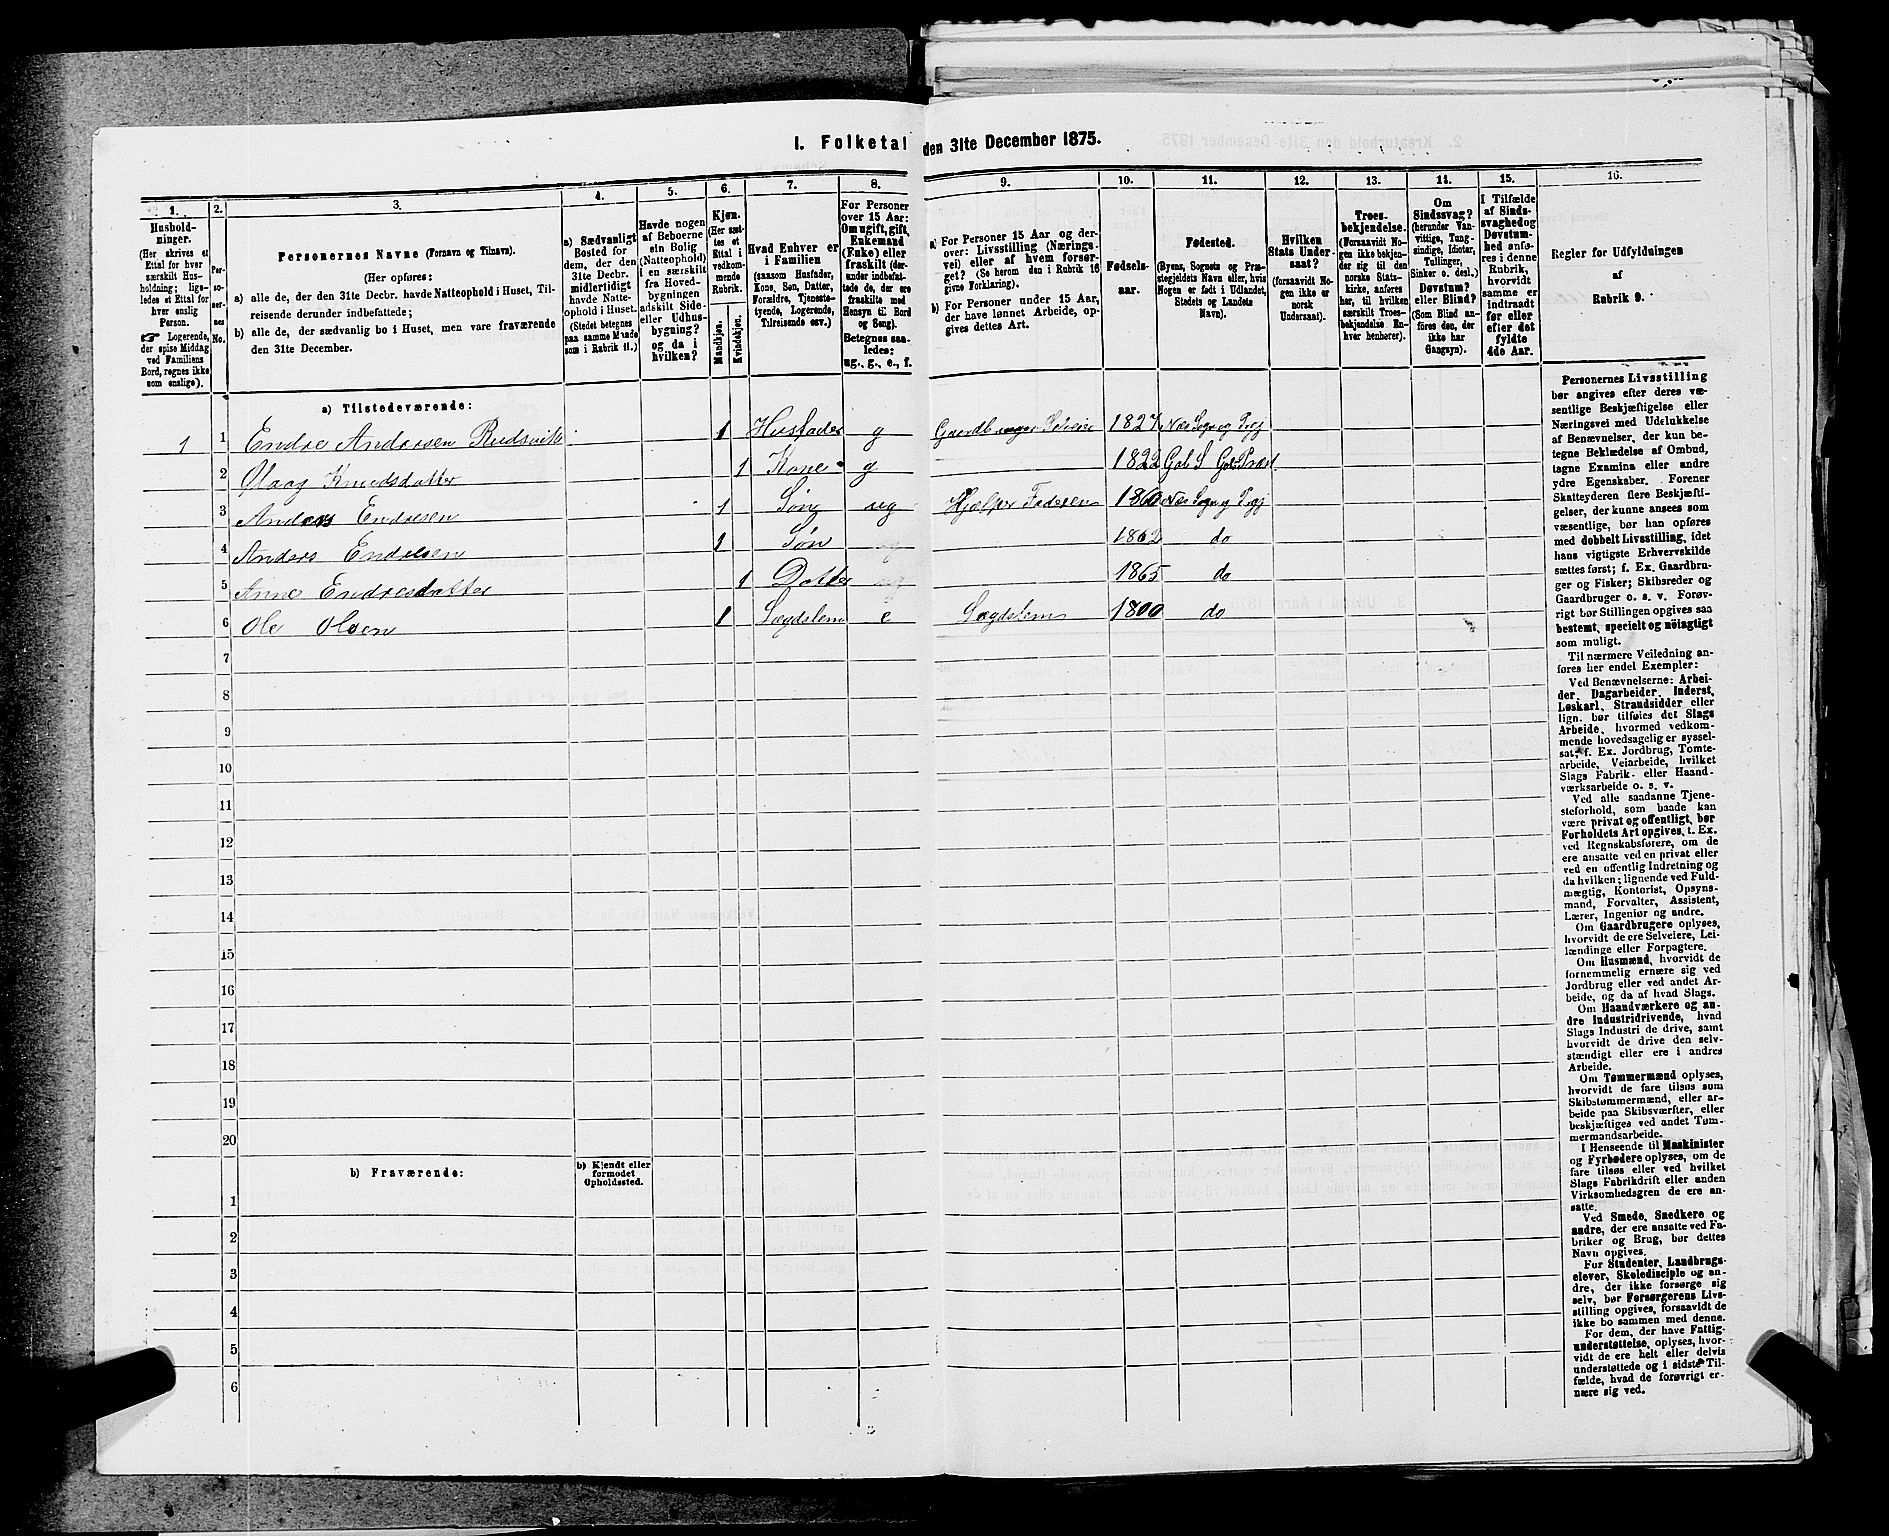 1. Folketal den 31te December 1875.
1.
Hushold-
ninger.
(Her skrives et
Ettal for hver
særskilt Hus-
holdning; lige-
ledes et Ettal for
hver enslig
Person.
☞ Logerende,
der spise Middag
ved Familiens
Bord, regnes ikke
som enslige).
2.
Per-
so-
ner-
nes
No.
3.
Personernes Navne (Fornavn og Tilnavn).
(Her opføres:
a) alle de, der den 31te Decbr. havde Natteophold i Huset, Til-
reisende derunder indbefattede;
b) alle de, der sædvanlig bo i Huset, men vare fraværende
den 31te December.
4.
a) Sædvanligt
Bosted for
dem, der den
31te Decbr.
midlertidigt
havde Natte-
ophold i Huset.
(Stedet betegnes
paa samme Maade
som i Rubrik 11.)
5.
Havde nogen
af Beboerne
sin Bolig
(Natteophold)
i en særskilt
fra Hoved-
bygningen
adskilt Side-
eller Udhus-
bygning?
og da i
hvilken?
6.
Kjøn.
(Her sæt-
tes et
Ettal i
vedkom-
mende
Rubrik.
Mandkjøn.
Kvindekjøn.
7.
Hvad Enhver er
i Familien
(saasom Husfader,
Kone, Søn, Datter,
Forældre, Tjeneste-
tyende, Logerende,
Tilreisende osv.)
8.
For Personer
over 15 Aar:
Om ugift, gift,
Enkemand
(Enke) eller
fraskilt (der-
under indbefat-
tede de, der ere
fraskilte med
Hensyn til Bord
og Seng).
Betegnes saa-
ledes:
ug., g., e., f.
9.
a) For Personer 15 Aar og der-
over: Livsstilling (Nærings-
vei) eller af hvem forsør-
get? (Se herom den i Rubrik 16
givne Forklaring).
b) For Personer under 15 Aar,
der have lønnet Arbeide, op-
gives dettes Art.
10.
Fødsels-
aar.
11.
Fødested.
(Byens, Sognets og Præ-
stegjeldets Navn eller, hvis
Nogen er født i Udlandet,
Stedets og Landets
Navn).
12.
Hvilken
Stats Under-
saat?
(forsaavidt No-
gen ikke er
norsk
Undersaat).
13.
Troes-
bekjendelse.
(Forsaavidt No-
gen ikke bekjen-
der sig til den
norske Stats-
kirke, anføres
her, til hvilken
særskilt Troes-
bekjendelse En-
hver henhører).
14.
Om
Sindssvag?
(herunder Van-
vittige, Tung-
sindige, Idioter,
Tullinger,
Sinker o. desl.)
Døvstum?
eller Blind?
(Som Blind an-
føres den, der
ikke har
Gangsyn).
15.
I Tilfælde
af Sinds-
svaghed og
Døvstum-
hed anfø-
res i denne
Rubrik,
hvorvidt
samme er
indtraadt
før eller
efter det
fyldte
4de Aar.
16.
Regler for Udfyldningen
af
Rubrik 9.
a) Tilstedeværende:
1 1 Endre Andersen Rudsvik 1 Husfader g Gaardbruger Selveier 1827 Næs Sogn og Prgj
2 Maag Knudsdatter 1 Kone g 1822 Gol S Gols Præst
3 Anders Endresen 1 Søn ug Hjælper Faderen 1860 Næs Sogn og Prgj
4 Anders Endresen 1 Søn 1862 do
5 Anne Endresdatter 1 Datter 1865 do
6 Ole Olsen 1 Lægdslem e Lægdslem 1800 do
7
8
9
10
11
12
13
14
15
16
17
18
19
20
b) Fraværende:
b) Kjendt eller
formodet
Opholdssted.
1
2
3
4
5
6
Personernes Livsstilling
bør angives efter deres væ-
sentlige Beskjæftigelse eller
Næringsvei med Udelukkelse
af Benævnelser, der kun be-
tegne Beklædelse af Ombud,
tagne Examina eller andre
ydre Egenskaber. Forener
Skatteyderen flere Beskjæfti-
gelser, der kunne ansees som
væsentlige, bør han opføres
med dobbelt Livsstilling, idet
hans vigtigste Erhvervskilde
sættes først; f. Ex. Gaardbru-
ger og Fisker; Skibsreder og
Gaardbruger o. s. v. Forøv-
rigt bør Stillingen opgives saa
bestemt, specielt og nöiagtigt
som muligt.
Til nærmere Veiledning an-
føres her endel Exempler:
Ved Benævnelserne: Arbei-
der, Dagarbeider, Inderst,
Løskarl, Strandsidder eller
lign. bør tilføies det Slags
Arbeide, hvormed vedkom-
mende hovedsagelig er syssel-
sat; f. Ex. Jordbrug, Tomte-
arbeide, Veiarbeide, hvilket
Slags Fabrik- eller Haand-
værksarbeide o. s. v.
Ved alle saadanne Tjene-
steforhold, som baade kan
være privat og offentligt, bør
Forholdets Art opgives, t. Ex.
ved Regnskabsførere, om de
ere ansatte ved en privat eller
ved en offentlig Indretning og
da hvilken; lignende ved Fuld-
mægtig, Kontorist, Opsyns-
mand, Forvalter, Assistent,
Lærer, Ingeniør og andre.
Om Gaardbrugere oplyses,
hvorvidt de ere Selveiere, Lei-
lændinge eller Forpagtere.
Om Husmænd, hvorvidt de
fornemmelig ernære sig ved
Jordbrug eller ved andet Ar-
beide, og da af hvad Slags.
Om Haandværkere og an-
dre Industridrivende, hvad
Slags Industri de drive, samt
hvorvidt de drive den selv-
stændigt eller ere i andres
Arbeide.
Om Tømmermænd oplyses,
hvorvidt de fare tilsøs som
Skibstømmermænd, eller ar-
beide paa Skibsværfter, eller
beskjæftiges ved andet Tøm-
mermandsarbeide.
I Henseende til Maskinister
og Fyrbødere oplyses, om de
fare tilsøs eller ved hvilket
Slags Fabrikdrift eller anden
Virksomhedsgren de ere an-
satte.
Ved Smede, Snedkere og
andre, der ere ansatte ved Fa-
briker og Brug, bør dettes
Navn opgives.
For Studenter, Landbrugs-
elever, Skoledisciple og an-
dre, der ikke forsørge sig
selv, bør Forsørgerens Livs-
stilling opgives, forsaavidt de
ikke bo sammen med denne.
For dem, der have Fattig-
understøttelse, oplyses, hvor-
vidt de ere helt eller delvis
understøttede og i sidste Til-
fælde, hvad de forøvrigt er-
nære sig ved.